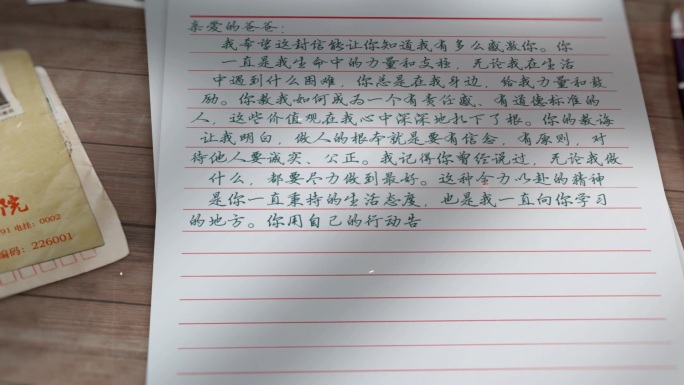 亲爱的爸爸：
我希望这封信能让你知道我有多么感激你。你
一直是我生命中的力量和支柱，无论我在生活
中遇到什么困难，你总是在我身边，给我力量和鼓
励。你教我如何成为一个有责任感、有道德标准的
人，这些价值观在我心中深深地扎下了根。你的教诲
让我明白，做人的根本就是要有信念，有原则，对
待他人要诚实、公正。我记得你曾经说过，无论我做
什么，都要尽力做到最好。这种全力以赴的精神
是你一直秉持的生活态度，也是我一直向你学习
的地方。你用自己的行动告
院
91 电挂：0002
编码：226001